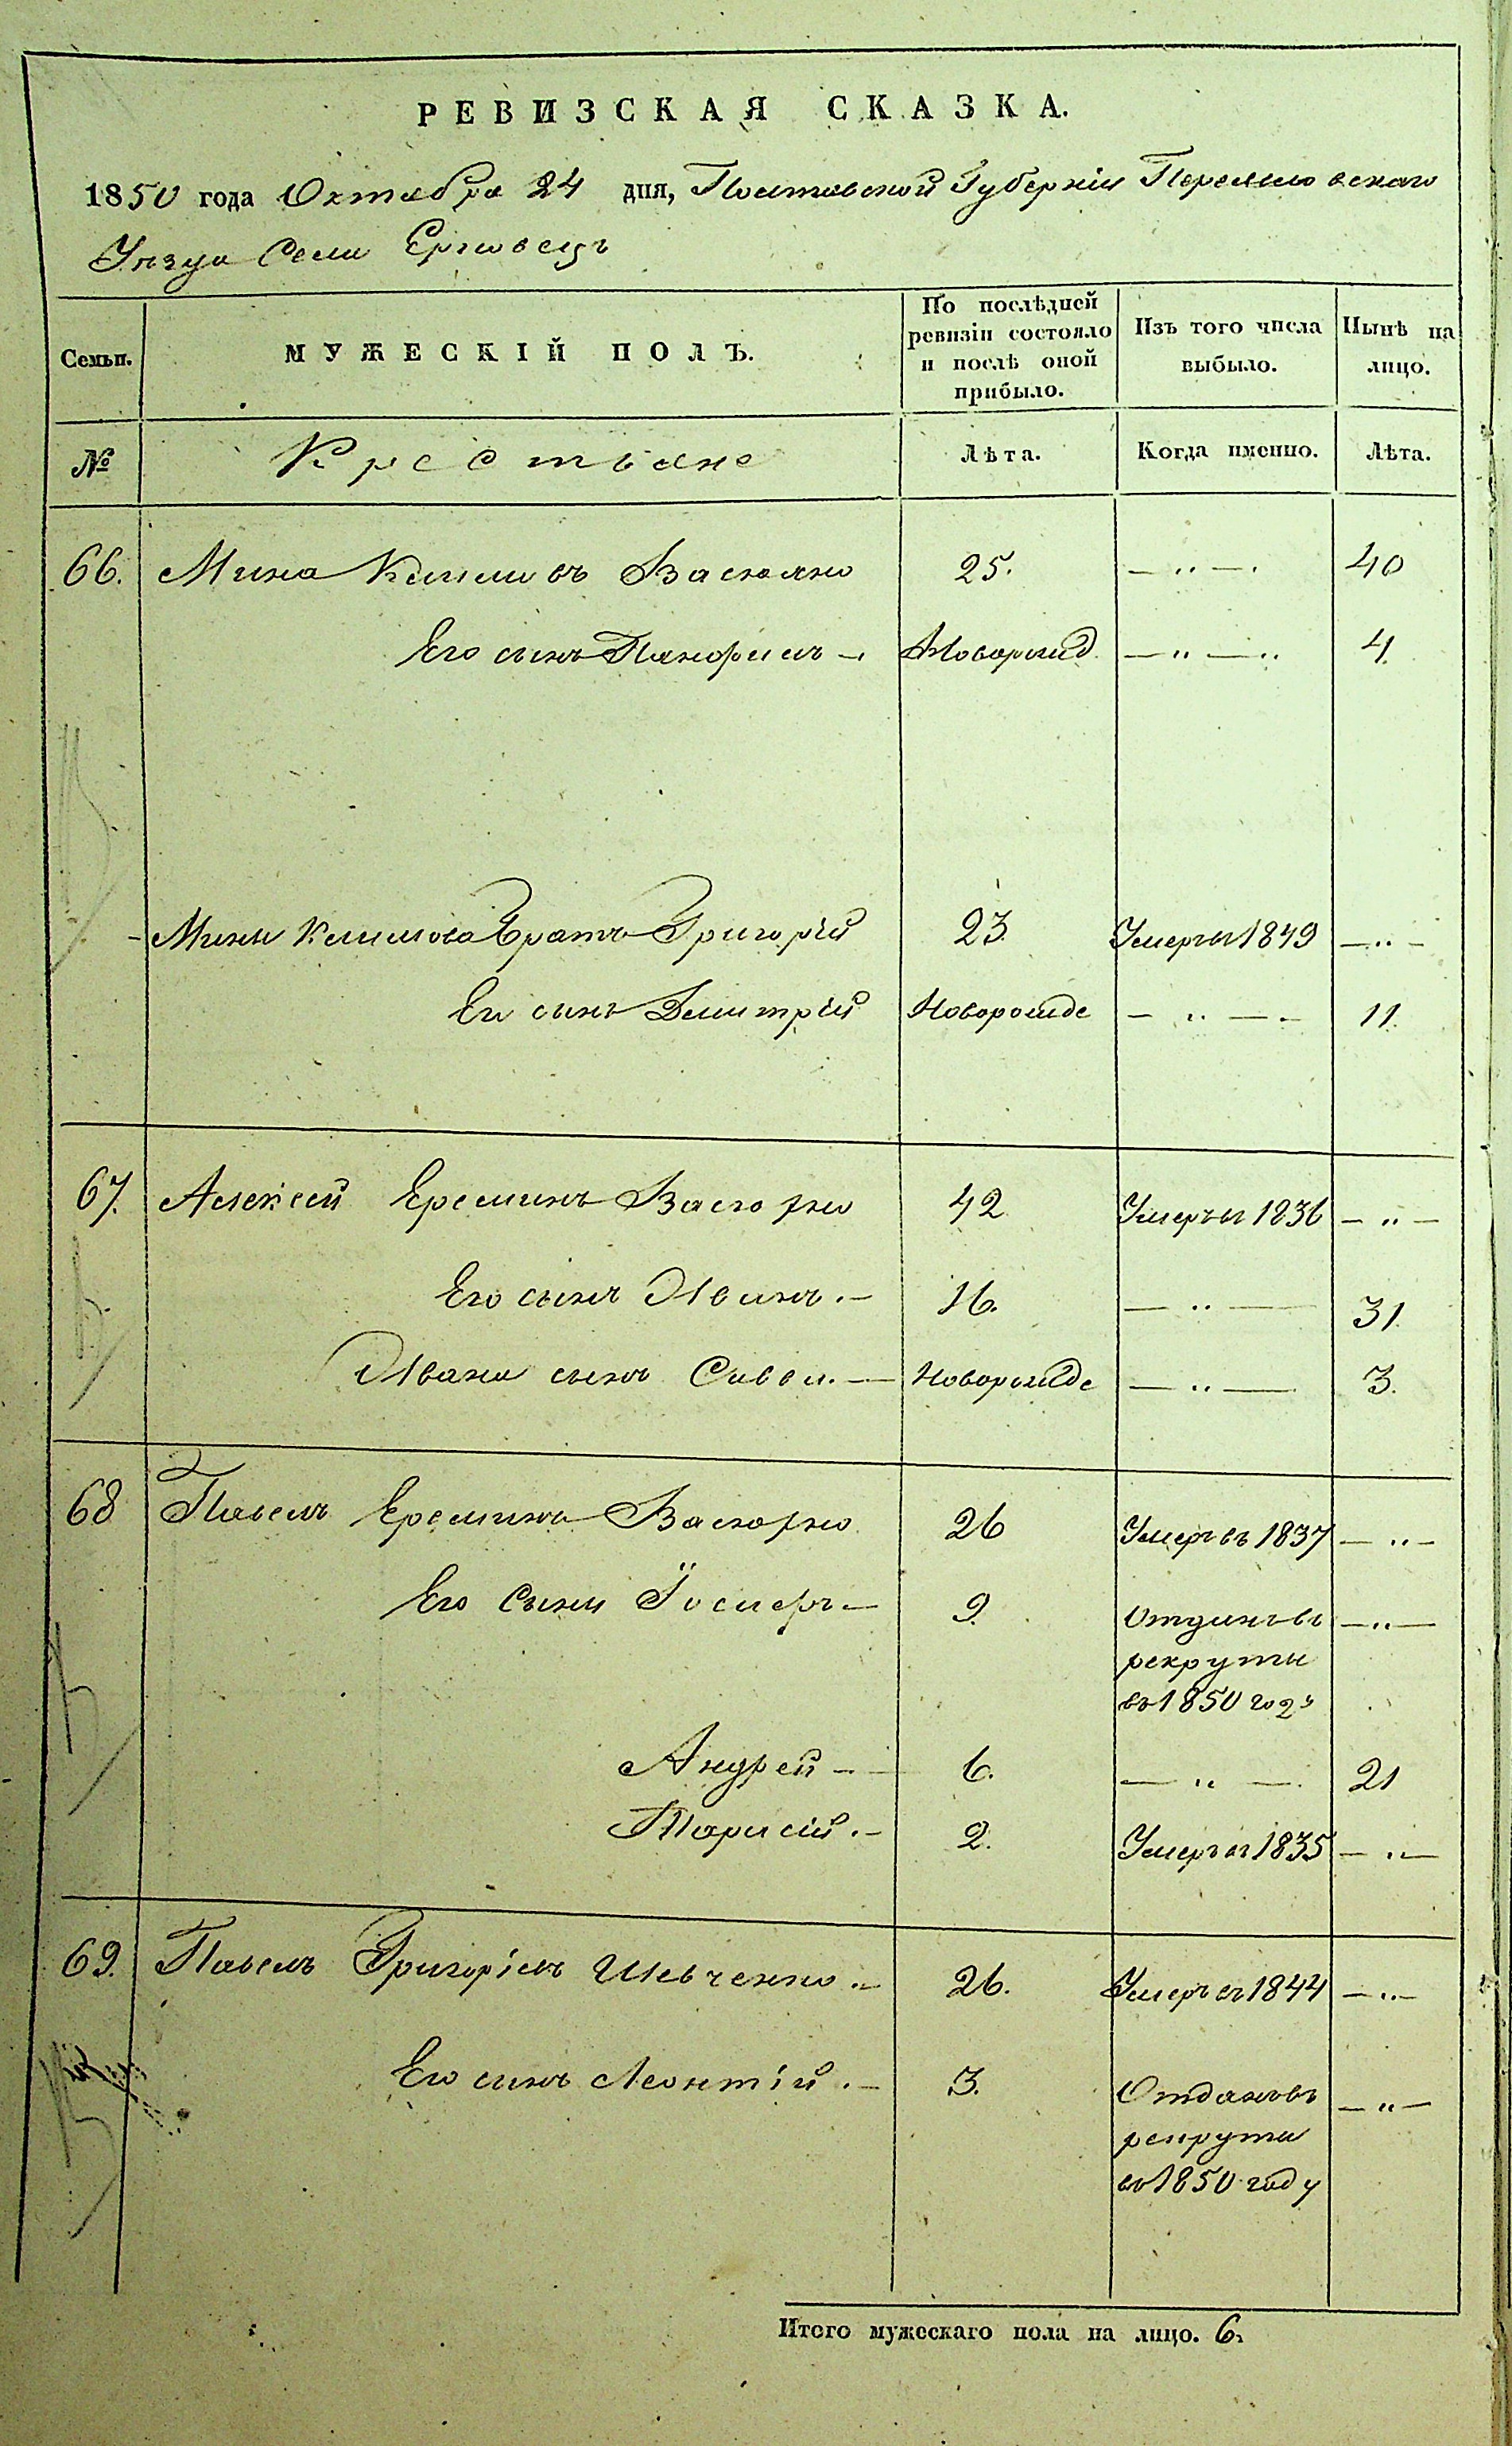 РЕВИЗСКАЯ СКАЗКА.
1850 года Октября 24 дня, Полтавской Губерніи Переяславскаго
Уѣзда Села
Семьи. МУЖЕСКІЙ ПОЛЪ. По послѣдней ревизіи состояло и послѣ оной прибыло. Изъ того числа выбыло. Нынѣ на лицо.
№ Крестьяне Лѣта. Когда именно. Лѣта.
66. Мина Климовъ 25. — „ — 40
Его сынъ Новорожд — „ — 4.
Мины Климова братъ Григорій 23 Умеръ 1849 — „ —
Его сынъ Дмитрій Новорожде — „ — 11.
67. Алексей Ереминъ 42 Умеръ 1836 — „ —
Его сынъ Иванъ. — 16. — „ — 31
Ивана сынъ Савва. — Новорожде — „ — 3.
68 Павелъ Ереминъ 26 Умеръ въ 1837 — „ —
Его Сыны — 9. Отданъ въ — „ —
рекруты
въ 1850 году
Андрей — 6. — „ — 21
2. Умеръ 1835 — „ —
69. Павелъ Григоріевъ Шевченко — 26. Умеръ въ 1844 — „ —
Его сынъ Леонтій. — 3. Отданъ въ — „ —
рекруты
въ 1850 году
Итого мужескаго пола на лицо. 6.